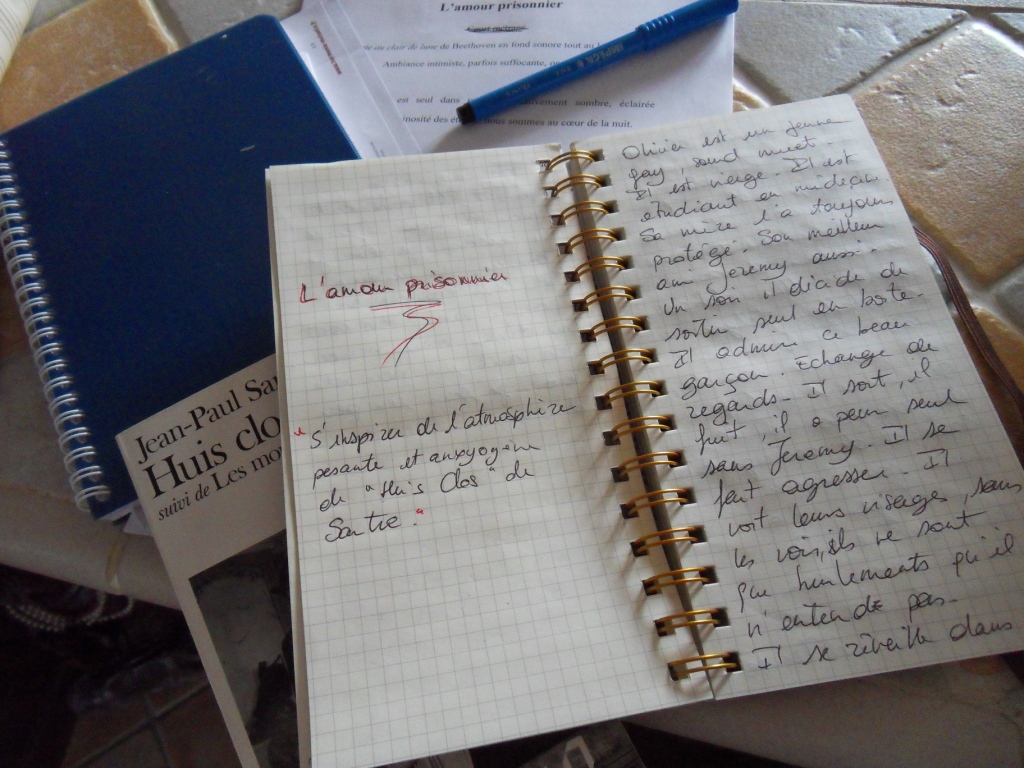 L'amour prisonnier
clair de lune de Beethoven en fond sonore tout au
Ambiance intimiste, parfois suffocante,
est seul dans sombre, éclairée
nous sommes au cœur de la nuit.
Jean-Paul Sar
Huis clo
suivi de Les mou
L'amour prisonnier
"S'inspirer de l'atmosphère
pesante et anxyogène
de "Huis Clos" de
Sartre."
Olivier est un jeune
gay, sourd muet.
Il est vierge. Il est
étudiant en médecine
Sa mère l'a toujours
protégé. Son meilleur
ami Jeremy aussi.
Un soir il décide de
sortir seul en boîte.
Il admire ce beau
garçon. Echange de
regards. Il sort, il
fuit, il a peur seul
sans Jeremy. Il se
fait agresser. Il
voit leurs visages, sans
les voir, ils ne sont
que hurlements qu'il
n'entende pas.
Il se réveille dans